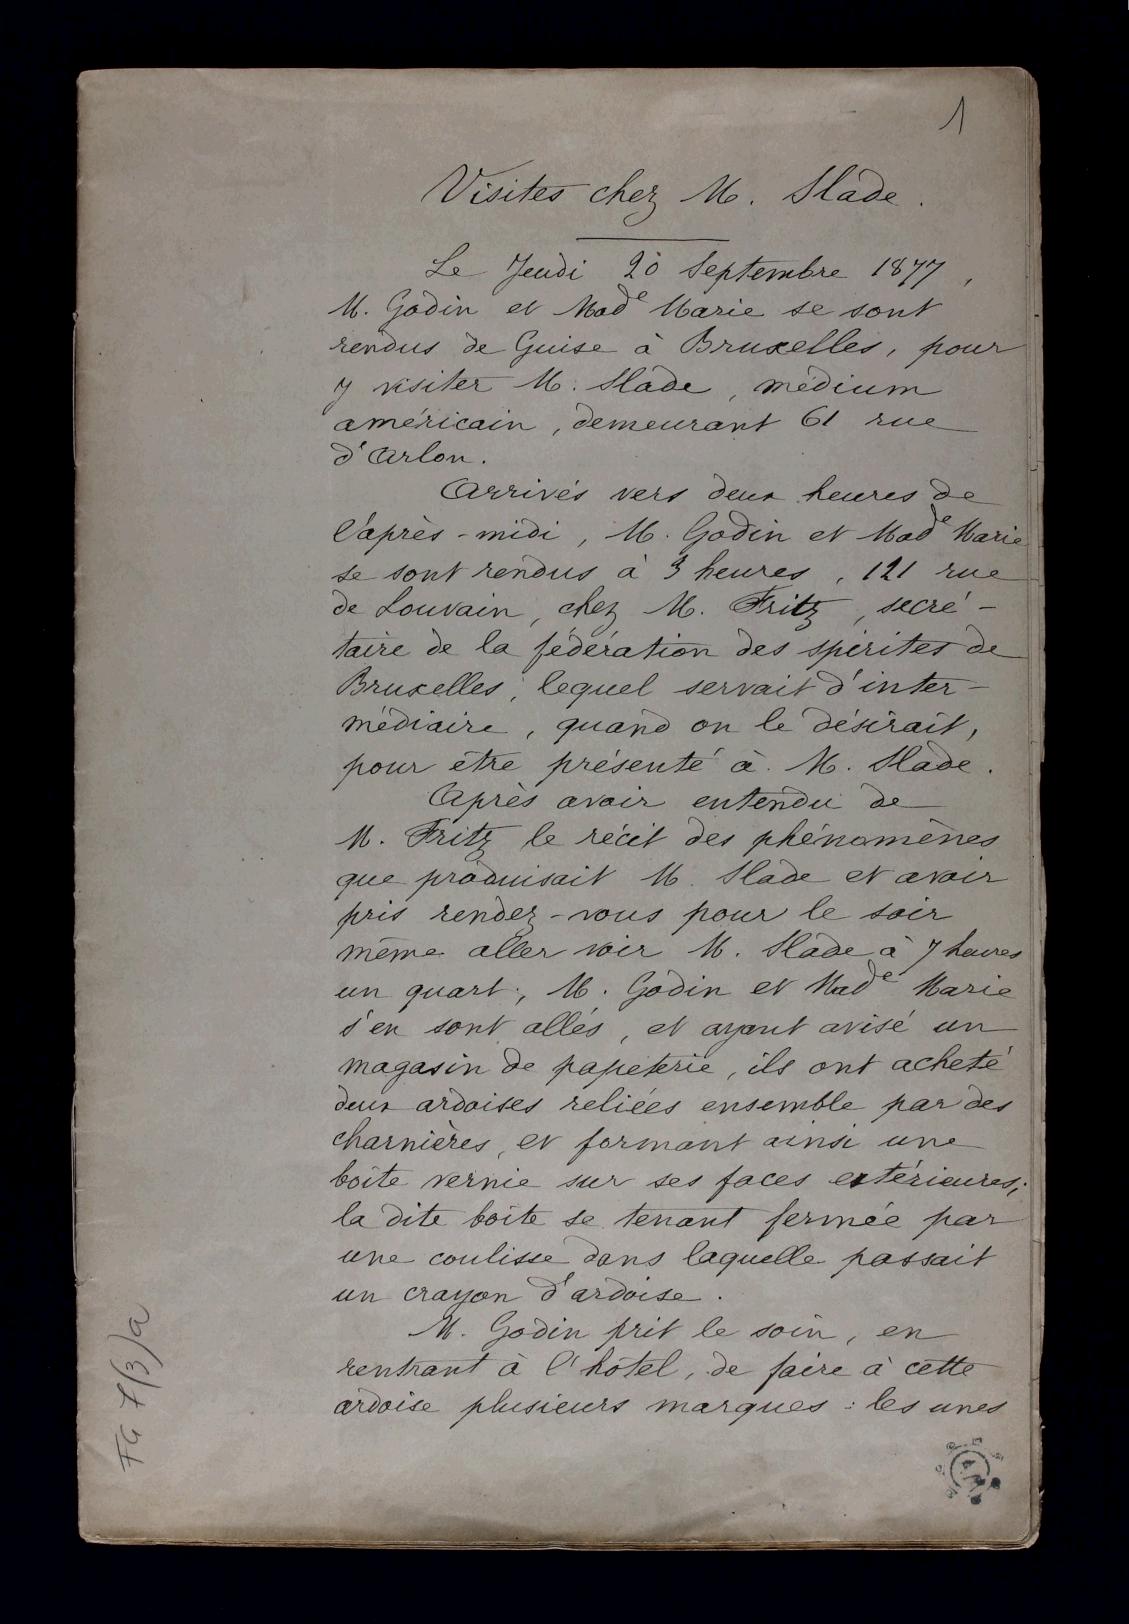 1
Visites chez M. Slade.
Le Jeudi 20 Septembre 1877,
M. Godin et Made Marie se sont
rendus de Guise à Bruxelles, pour
y visiter M. Slade, médium
américain, demeurant 61 rue
d'Arlon.
Arrivés vers deux heures de
l'après-midi, M. Godin et Made Marie
se sont rendus à 3 heures, 121 rue
de Louvain, chez M. Fritz, secré-
taire de la fédération des spirites de
Bruxelles, lequel servait d'inter-
médiaire, quand on le désirait,
pour être présenté à M. Slade.
Après avoir entendu de
M. Fritz le récit des phénomènes
que produisait M. Slade et avoir
pris rendez-vous pour le soir
même aller voir M. Slade à 7 heures
un quart, M. Godin et Made Marie
s'en sont allés, et ayant avisé un
magasin de papeterie, ils ont acheté
deux ardoises reliées ensemble par des
charnières, et formant ainsi une
boîte vernie sur ses faces extérieures;
la dite boîte se tenant fermée par
une coulisse dans laquelle passait
un crayon d'ardoise.
M. Godin prit le soin, en
rentrant à l'hôtel, de faire à cette
ardoise plusieurs marques : les unes
FG 7(3)a